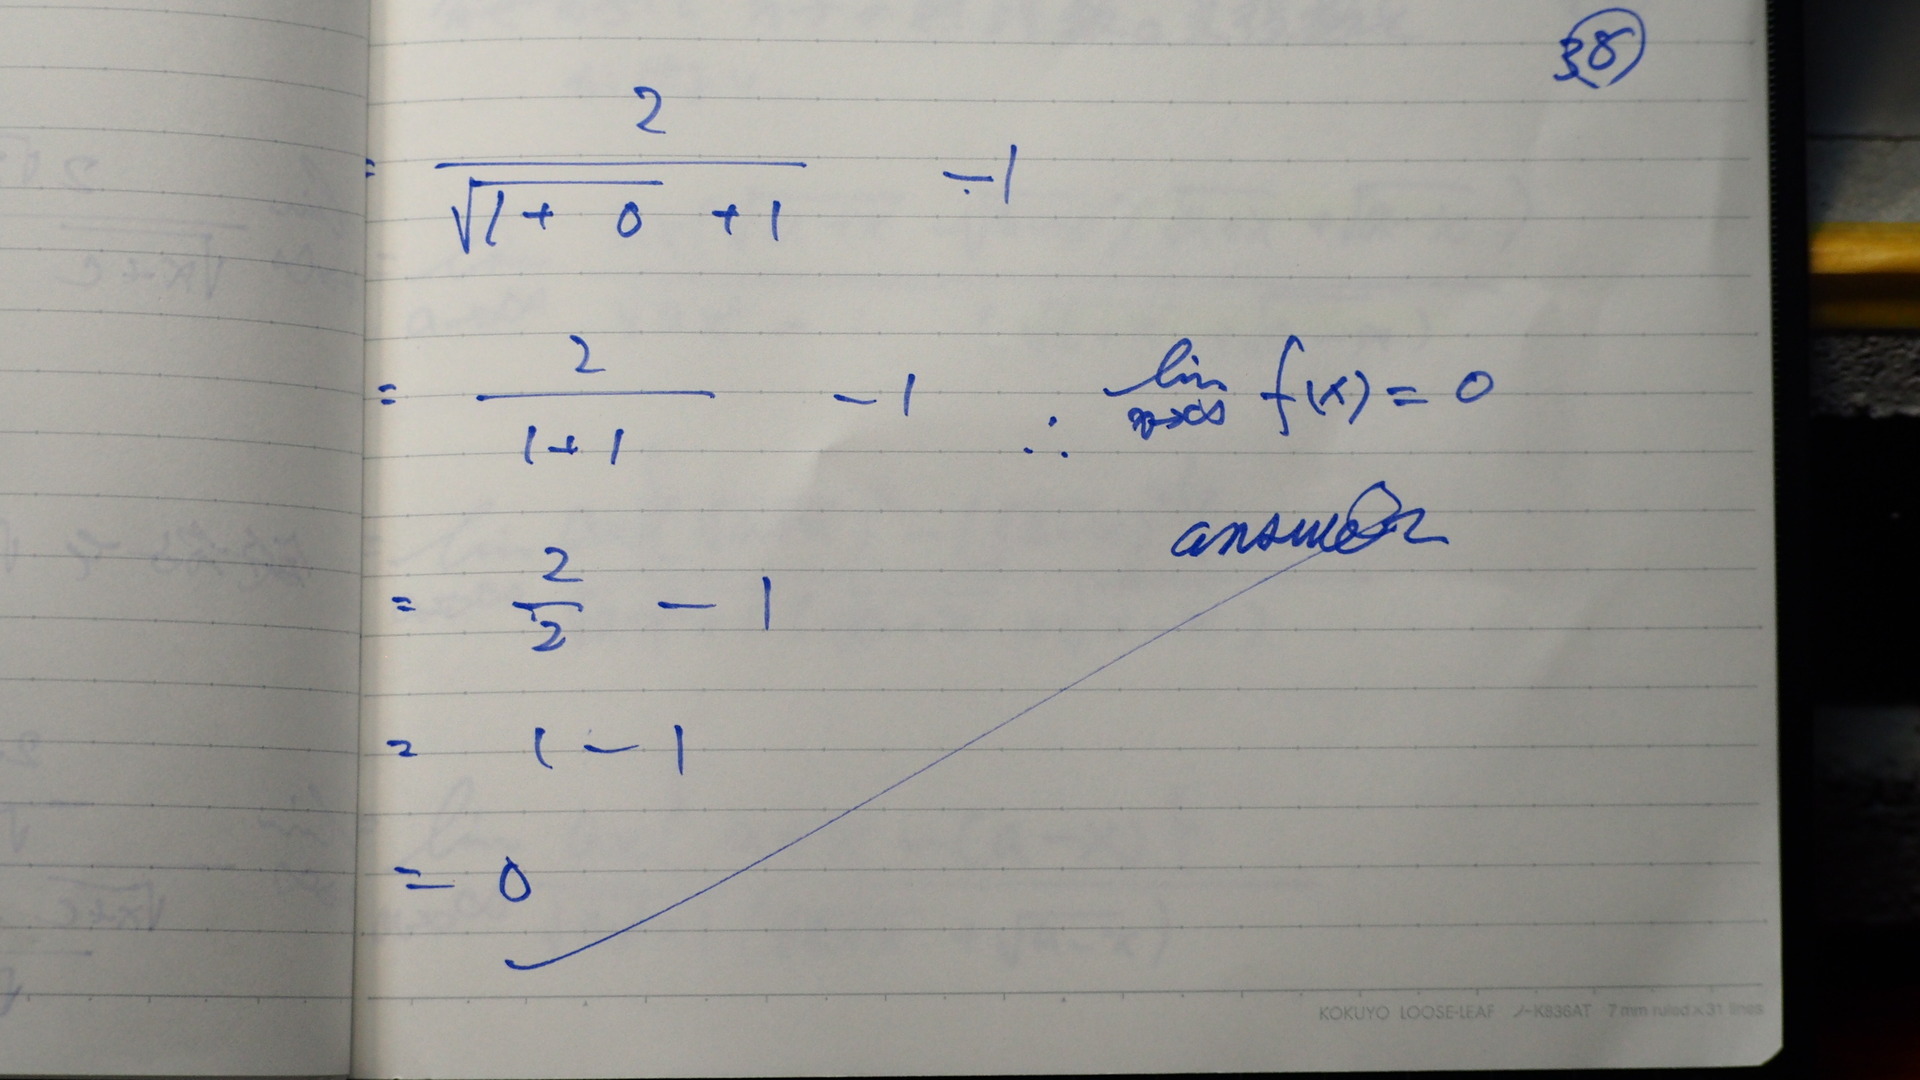 38
= 2 / (√(1 + 0) + 1) - 1
= 2 / (1 + 1) - 1 ∴ lim x→∞ f(x) = 0
answer
= 2/2 - 1
= 1 - 1
= 0
KOKUYO LOOSE-LEAF ノ-K836AT 7mm ruled x 31 lines